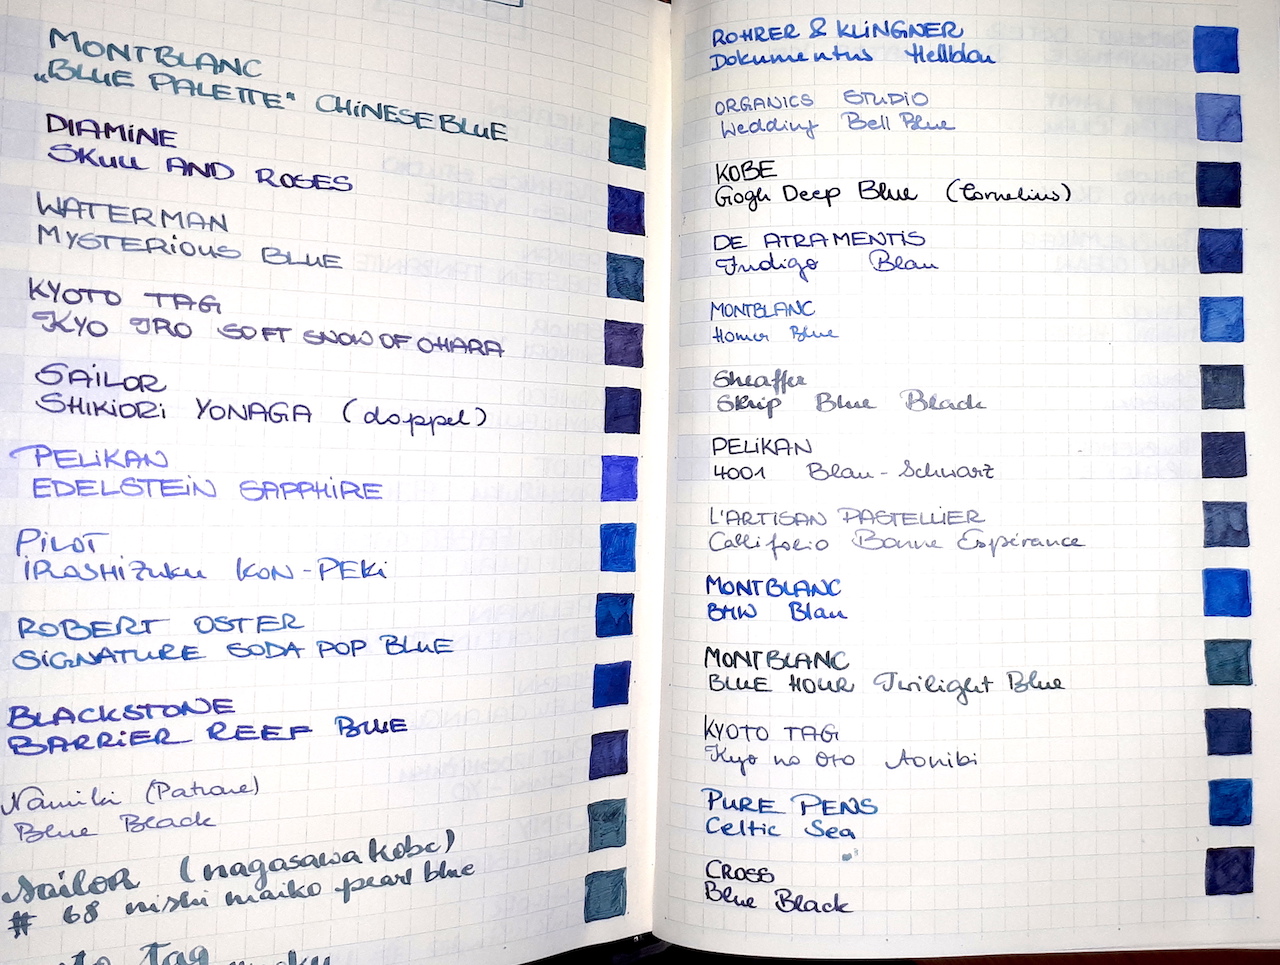 MONTBLANC
„BLUE PALETTE“ CHINESE BLUE
DIAMINE
SKULL AND ROSES
WATERMAN
MYSTERIOUS BLUE
KYOTO TAG
KYO IRO SOFT SNOW OF OHARA
SAILOR
SHIKIORI YONAGA (doppel)
PELIKAN
EDELSTEIN SAPPHIRE
PILOT
IROSHIZUKU KON-PEKI
ROBERT OSTER
SIGNATURE SODA POP BLUE
BLACKSTONE
BARRIER REEF BLUE
Namiki (Patrone)
Blue Black
Sailor (nagasawa kobe)
# 68 nishi maiko pearl blue
Tag
ROHRER & KLINGNER
Dokumentus Hellblau
ORGANICS STUDIO
Wedding Bell Blue
KOBE
Gogh Deep Blue (Cornelius)
DE ATRAMENTIS
Indigo Blau
MONTBLANC
Homer Blue
Sheaffer
Skrip Blue Black
PELIKAN
4001 Blau-Schwarz
L'ARTISAN PASTELLIER
Callifolio Bonne Espérance
MONTBLANC
BMW Blau
MONTBLANC
BLUE HOUR Twilight Blue
KYOTO TAG
Kyo no Oto Aonibi
PURE PENS
Celtic Sea
CROSS
Blue Black